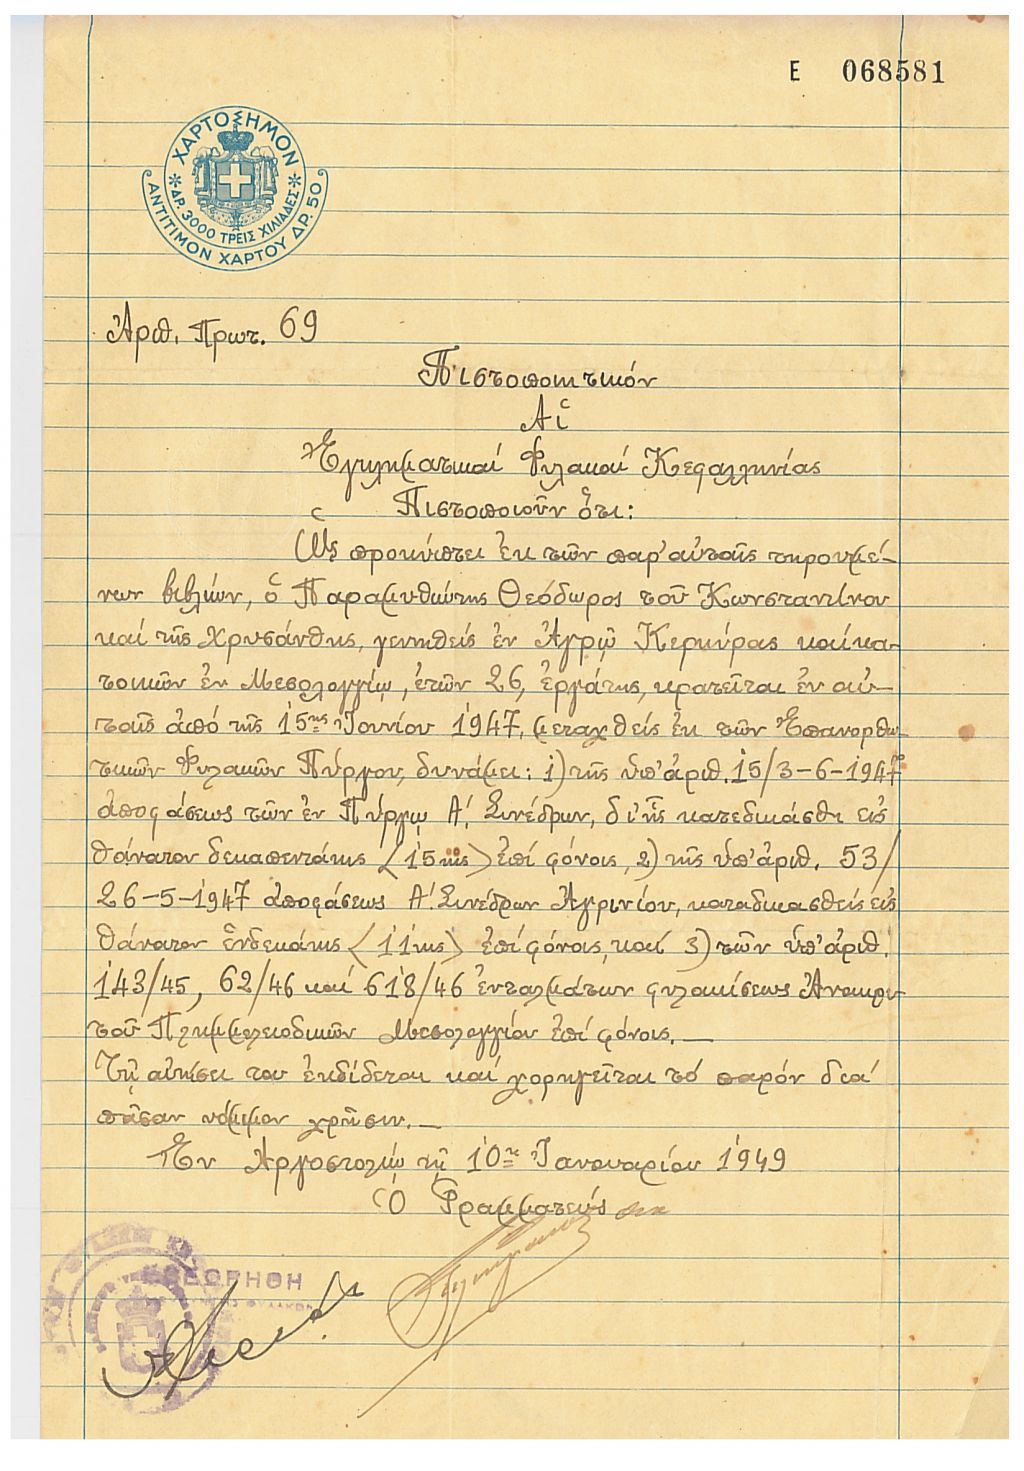 Ε 068581
ΧΑΡΤΟΣΗΜΟΝ
ΔΡ. 3000 ΤΡΕΙΣ ΧΙΛΙΑΔΕΣ
ΑΝΤΙΤΙΜΟΝ ΧΑΡΤΟΥ ΔΡ. 50
Ἀριθ. Πρωτ. 69
Πιστοποιητικόν
Αἱ
Ἐγκληματικαί Φυλακαί Κεφαλληνίας
Πιστοποιοῦν ὅτι:
Ὡς προκύπτει ἐκ τῶν παρ' αὐταῖς τηρουμέ-
νων βιβλίων, ὁ Παραμυθιώτης Θεόδωρος τοῦ Κωνσταντίνου
καί τῆς Χρυσάνθης, γεννηθείς ἐν Ἀγρῷ Κερκύρας καί κα-
τοικῶν ἐν Μεσολογγίῳ, ἐτῶν 26, ἐργάτης, κρατεῖται ἐν αὐ-
ταῖς ἀπό τῆς 15ης Ἰουνίου 1947, μεταχθείς ἐκ τῶν Ἐπανορθω-
τικῶν Φυλακῶν Πύργου, δυνάμει: 1) τῆς ὑπ' ἀριθ. 15/3-6-1947
ἀποφάσεως τῶν ἐν Πύργῳ Α΄. Συνέδρων, δι' ἧς κατεδικάσθη εἰς
θάνατον δεκαπεντάκις <15κις> ἐπί φόνοις, 2) τῆς ὑπ' ἀριθ. 53/
26-5-1947 ἀποφάσεως Α΄. Συνέδρων Ἀγρινίου, καταδικασθείς εἰς
θάνατον ἑνδεκάκις <11κις> ἐπί φόνοις, καί 3) τῶν ὑπ' ἀριθ.
143/45, 62/46 καί 618/46 ἐνταλμάτων φυλακίσεως Ἀνακρι-
τοῦ Πλημμελειοδικῶν Μεσολογγίου ἐπί φόνοις.—
Τῇ αἰτήσει του ἐκδίδεται καί χορηγεῖται τό παρόν διά
πᾶσαν νόμιμον χρῆσιν.—
Ἐν Ἀργοστολίῳ τῇ 10ῃ Ἰανουαρίου 1949
Ὁ Γραμματεύς
ΕΘΕΩΡΗΘΗ
ΦΥΛΑΚΩΝ